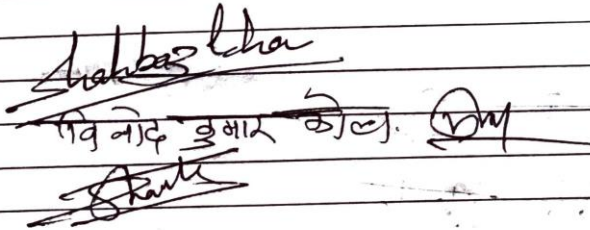 Shahbaz Kha
विनोद कुमार कोल.